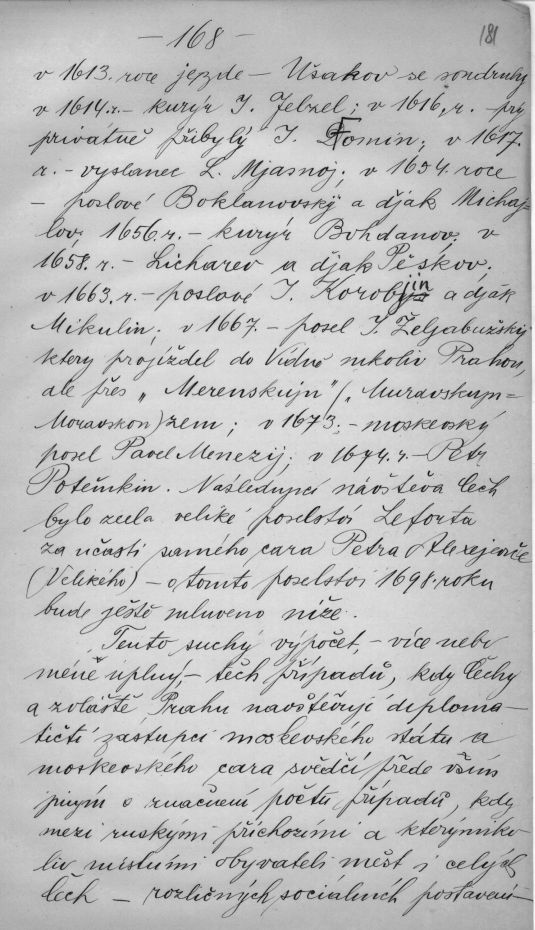 — 168 —
181
v 1613. roce jezde — Ušakov se soudruhy
v 1614. r. — kurýr I. Jebzel; v 1616. r. — pry
privátně přibylý I. Fomin; v 1617.
r. — vyslanec L. Mjasnoj; v 1654. roce
— poslové Boklanovský a djak Michaj-
lov; 1656. r. — kurýr Bohdanov; v
1658. r. — Licharev a djak Pěskov;
v 1663. r. — poslové I. Korobjin a djak
Mikulin; v 1667. — posel I. Željabužský
ktery projížděl do Vídně nikoliv Prahou,
ale přes „Merenskujn" („Muravskujn =
Moravskou) zem; v 1673. — moskevský
posel Pavel Menezij; v 1674. r. — Petr
Potěmkin. Následující návštěva Čech
bylo zcela veliké poselstvo Leforta
za učasti samého cara Petra Alexejeviče
(Velikého) — o tomto poselstvi 1698. roku
bude ještě mluveno níže.
Tento suchý výpočet, — více nebo
méně úplný, — těch případů, kdy Čechy
a zvláště Prahu navštěvují diploma—
tičtí zástupci moskevského státu a
moskevského cara svědčí přede vším
jiným o značném počtu případů, kdy
mezi ruskými příchozími a kterýmiko
liv místními obyvateli měst i celých
Čech — rozličných sociálních postavení —